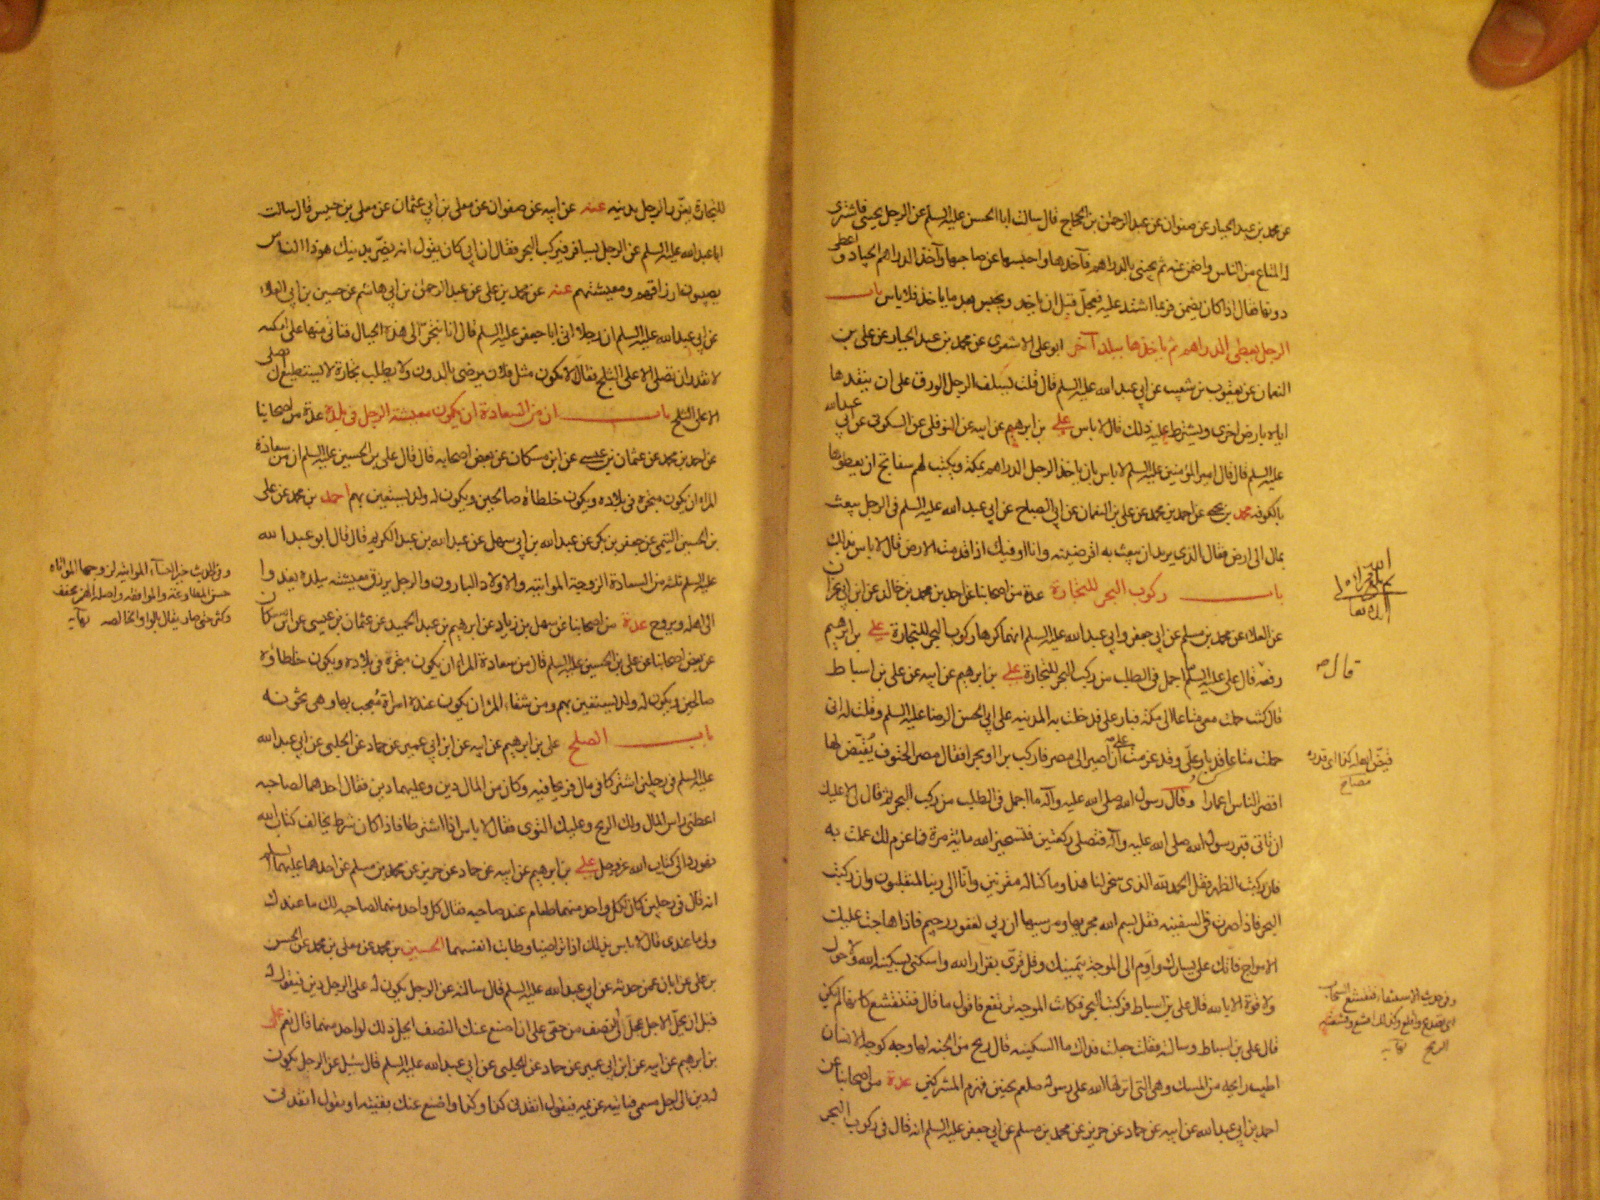 عن محمد بن عبد الجبار عن صفوان عن عبد الرحمن بن الحجاج قال سالت ابا الحسن عليه السلم عن الرجل يجيئني فاشترى
له المتاع من الناس واضمن عنه ثم يجيئني بالدراهم فآخذها واحبسها عن صاحبها وآخذ الدراهم الجياد واعطى
دونها فقال اذا كان يضمن فربما اشتد عليه فعجل قبل ان ياخذ ويحبس بعد ما ياخذ فلا باس باب
الرجل يعطى الدراهم ثم ياخذها ببلد آخر ابو على الاشعرى عن محمد بن عبد الجبار عن على بن
النعمان عن يعقوب بن شعيب عن ابى عبد الله عليه السلم قال قلت يسلف الرجل الورق على ان ينقدها
اياه بارض اخرى ويشترط عليه ذلك قال لا باس على بن ابرهيم عن ابيه عن النوفلى عن السكونى عن ابى عبد الله
عليه السلم قال قال امير المؤمنين عليه السلم لا باس بان ياخذ الرجل الدراهم بمكة ويكتب لهم سفاتج ان يعطوها
بالكوفه محمد بن يحيى عن احمد بن محمد عن على بن النعمان عن ابى الصباح عن ابى عبد الله عليه السلم فى الرجل يبعث
بمال الى ارض فقال الذى يريد ان يبعث به اقرضنيه وانا اوفيك اذا قدمت الارض قال لا باس بذلك
باب ركوب البحر للتجارة عدة من اصحابنا عن احمد بن محمد بن خالد عن ابن ابى نجران
عن العلاء عن محمد بن مسلم عن ابى جعفر وابى عبد الله عليه السلم انهما كرها ركوب البحر للتجارة على بن ابرهيم
رفعه قال على عليه السلم ما اجمل فى الطلب من ركب البحر للتجارة على بن ابرهيم عن ابيه عن على بن اسباط
قال كنت حملت معى متاعا الى مكة فبار على فدخلت به المدينه على ابى الحسن الرضا عليه السلم وقلت له انى
حملت متاعا قد بار على وقد عزمت على ان اصير الى مصر فاركب برا او بحرا فقال مصر الحتوف يقيض لها
اقصر الناس اعمارا وقال رسول الله صلى الله عليه وآله ما اجمل فى الطلب من ركب البحر ثم قال لى لا عليك
ان تاتى قبر رسول الله صلى الله عليه وآله فتصلى ركعتين فتستخير الله مائة مرة فما عزم لك عملت به
فان ركبت الظهر فقل الحمد لله الذى سخر لنا هذا وما كنا له مقرنين وانا الى ربنا لمنقلبون وان ركبت
البحر فاذا صرت فى السفينه فقل بسم الله مجريها ومرسيها ان ربى لغفور رحيم فاذا هاجت عليك
الامواج فاتك على يسارك واوم الى الموجة بيمينك وقل قرى بقرار الله واسكنى بسكينة الله ولا حول
ولا قوة الا بالله قال على بن اسباط فركبت البحر فكانت الموجه ترتفع فاقول ما قال فتتقشع كانها لم تكن
قال على بن اسباط وسالته فقلت جعلت فداك ما السكينه قال ريح من الجنه لها وجه كوجه الانسان
اطيب رايحه من المسك وهى التى انزلها الله على رسوله صلعم بحنين فهزم المشركين عدة من اصحابنا عن
احمد بن ابى عبد الله عن ابيه عن حماد عن حريز عن محمد بن مسلم عن ابى جعفر عليه السلم انه قال فى ركوب البحر
قال
وفى حديث الاستسقاء فتقشع السحاب
الريح نهايه
للتجارة يغرر الرجل بدينه عنه عن ابيه عن صفوان عن معلى بن ابى عثمان عن معلى بن خنيس قال سالت
ابا عبد الله عليه السلم عن الرجل يسافر فيركب البحر فقال ان ابى كان يقول انه يضر بدينك هوذا الناس
يصيبون ارزاقهم ومعيشتهم عنه عن محمد بن على عن عبد الرحمن بن ابى هاشم عن حسين بن ابى العلاء
عن ابى عبد الله عليه السلم ان رجلا اتى ابا جعفر عليه السلم فقال انا نتجر الى هذه الجبال فناتى منها على امكنه
لا نقدر ان نصلى الا على الثلج فقال الا تكون مثل فلان يرضى بالدون ولا يطلب تجارة لا يستطيع ان يصلى
الا على الثلج باب ان من السعادة ان يكون معيشة الرجل فى بلده عدة من اصحابنا
عن احمد بن محمد عن عثمان بن عيسى عن ابن مسكان عن بعض اصحابه قال قال على بن الحسين عليه السلم ان من سعادة
المرء ان يكون متجره فى بلاده ويكون خلطاؤه صالحين ويكون له ولد يستعين بهم احمد بن محمد عن على
بن الحسين التيمى عن جعفر بن بكر عن عبد الله بن ابى سهل عن عبد الله بن عبد الكريم قال قال ابو عبد الله
عليه السلم ثلثه من السعادة الزوجة المواتيه والاولاد البارون والرجل يرزق معيشته ببلده يغدوا
الى اهله ويروح عدة من اصحابنا عن سهل بن زياد عن ابرهيم بن عبد الحميد عن عثمان بن عيسى عن ابن مسكان
عن بعض اصحابنا عن على بن الحسين عليه السلم قال من سعادة المرء ان يكون متجره فى بلاده ويكون خلطاؤه
صالحين ويكون له ولد يستعين بهم ومن شقاء المرء ان يكون عنده امراة معجب بها وهى تخونه
باب الصلح على بن ابرهيم عن ابيه عن ابن ابى عمير عن حماد عن الحلبى عن ابى عبد الله
عليه السلم فى رجلين اشتركا فى مال فربحا فيه وكان من المال دين وعليهما دين فقال احدهما لصاحبه
اعطنى راس المال ولك الربح وعليك التوى فقال لا باس اذا اشترطا فاذا كان شرط يخالف كتاب الله
فهو رد الى كتاب الله عز وجل على بن ابرهيم عن ابيه عن حماد عن حريز عن محمد بن مسلم عن احدهما عليهما السلم
انه قال فى رجلين كان لكل واحد منهما طعام عند صاحبه فقال كل واحد منهما لصاحبه لك ما عندك
ولى ما عندى قال لا باس بذلك اذا تراضيا وطابت انفسهما الحسين بن محمد عن معلى بن محمد عن الحسن
بن على عن ابان عمن حدثه عن ابى عبد الله عليه السلم قال سالته عن الرجل يكون له على الرجل دين فيقول له
قبل ان يحل الاجل عجل لى النصف من حقى على ان اضع عنك النصف ايحل ذلك لواحد منهما قال نعم على
بن ابرهيم عن ابيه عن ابن ابى عمير عن حماد عن الحلبى عن ابى عبد الله عليه السلم قال سئل عن الرجل يكون
له دين الى اجل مسمى فياتيه غريمه فيقول انقدنى كذا وكذا واضع عنك بقيته او يقول انقدنى
وفى الحديث خير النساء المواتيه لزوجها المواتاه
حسن المطاوعة والموافقه واصله الهمز فخفف
وكثر حتى صار يقال بالواو الخالصه نهايه